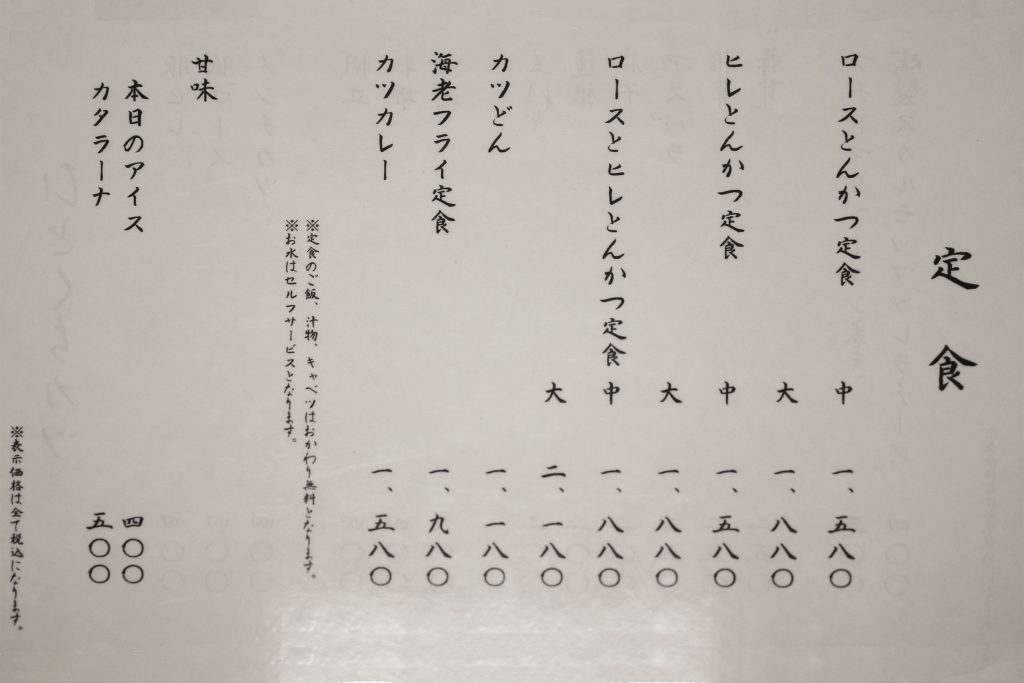 定食
ロースとんかつ定食 中 一、五八〇
大 一、八八〇
ヒレとんかつ定食 中 一、五八〇
大 一、八八〇
ロースとヒレとんかつ定食 中 一、八八〇
大 二、一八〇
カツどん 一、一八〇
海老フライ定食 一、九八〇
カツカレー 一、五八〇
※定食のご飯、汁物、キャベツはおかわり無料となります。
※お水はセルフサービスとなります。
甘味
本日のアイス 四〇〇
カタラーナ 五〇〇
※表示価格は全て税込になります。